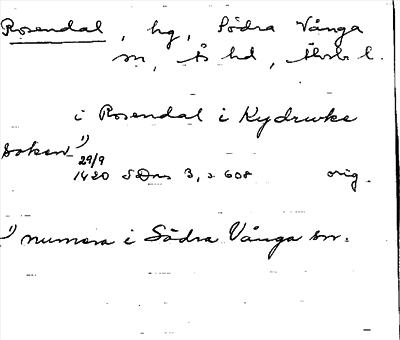 Rosendal, hg, Södra Vånga
sn, Ås hd, Älvsb l.
i Rosendal i Kydrwke
soken 1)
29/9
1420 SDns 3, s 608 orig.
1) numera i Södra Vånga sn.